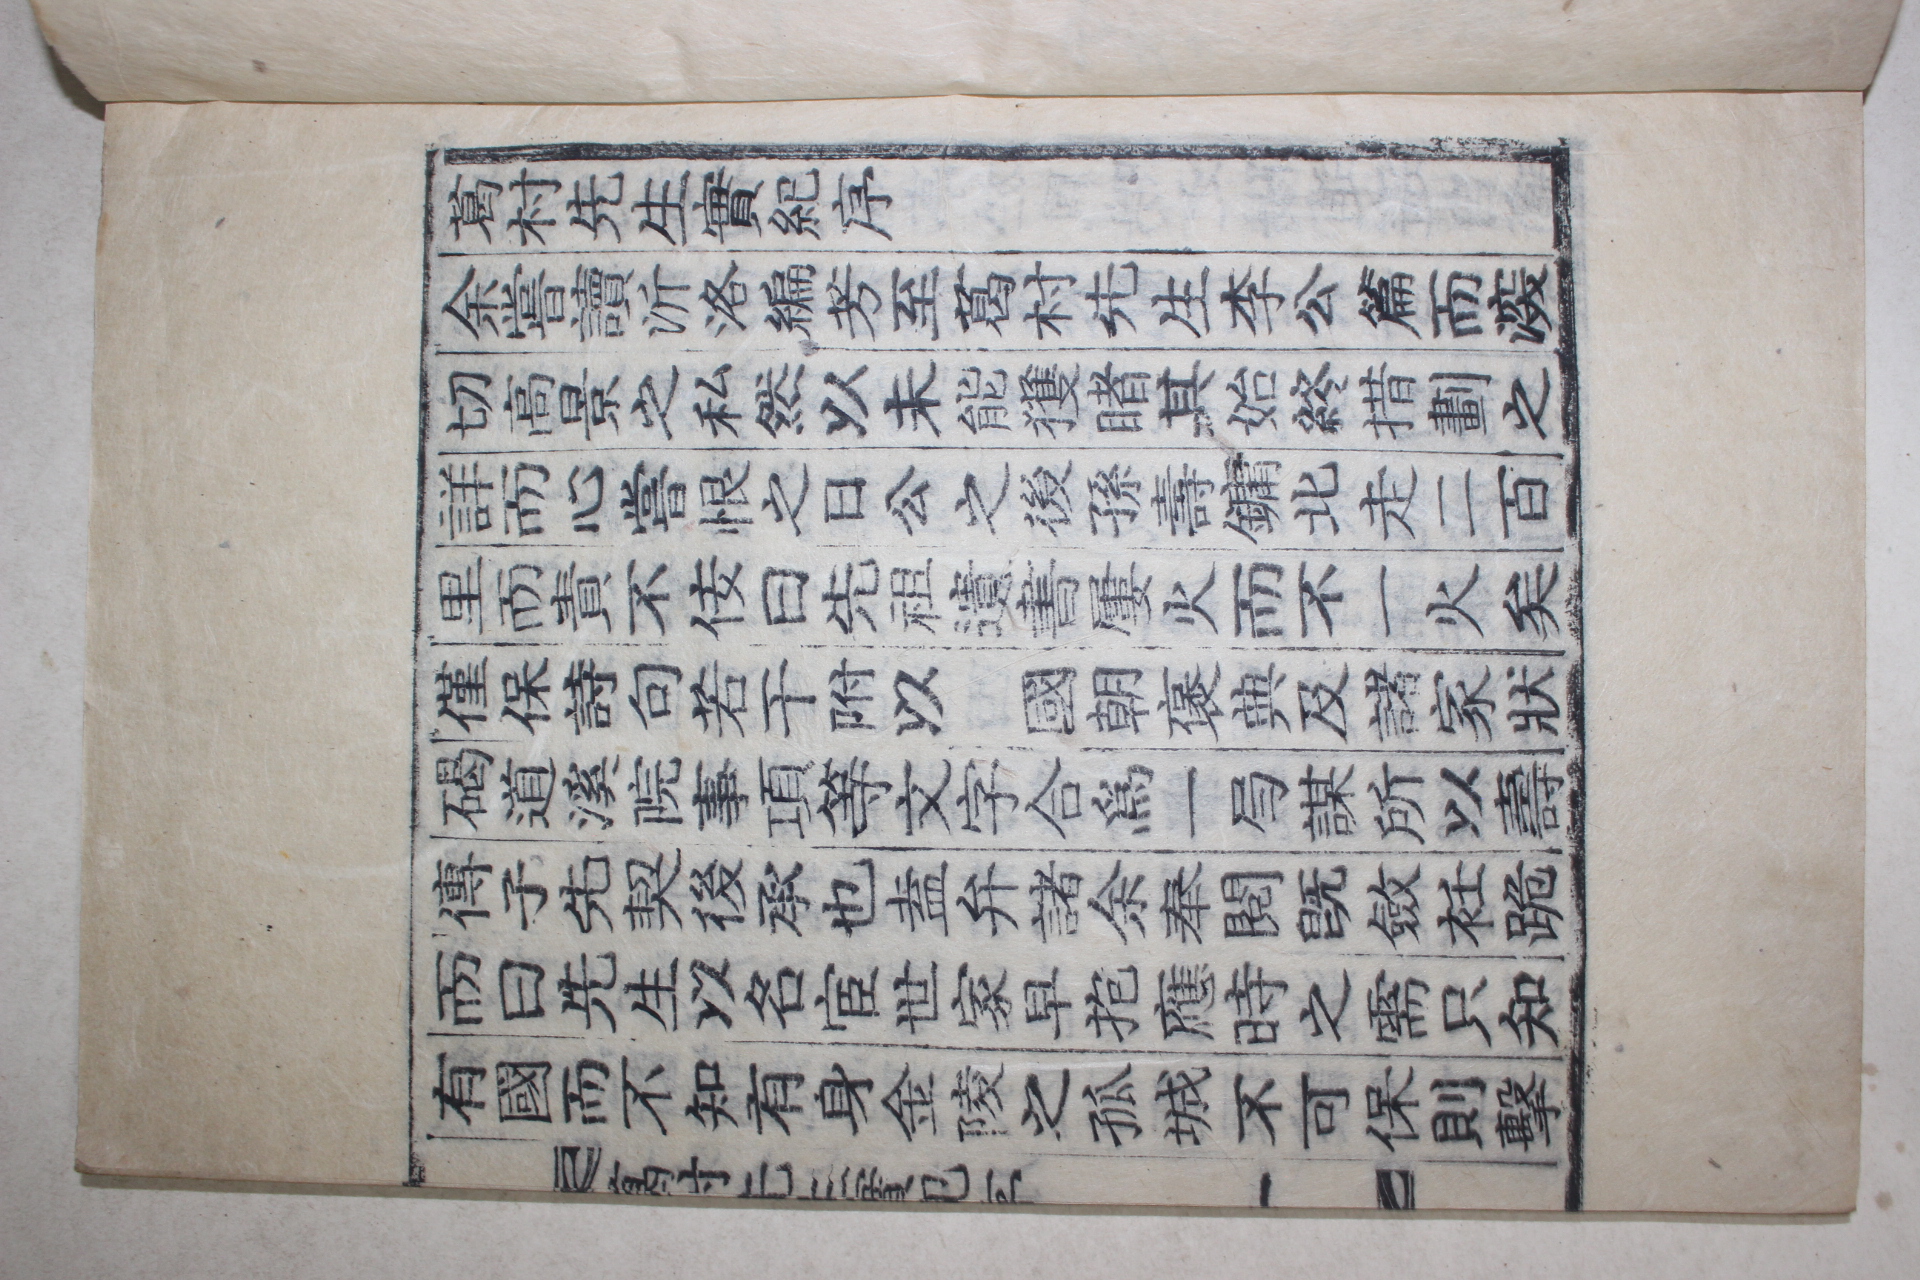 葛村先生實紀序
余嘗讀沂洛編芳至葛村先生李公篇而激
切高景之私然以未能獲睹其始終措劃之
詳而心嘗恨之日公之後孫壽鏞北走二百
里而責不佞曰先祖遺書屢火而不一火矣
僅保詩句若干附以 國朝褒典及諸家狀
碣道溪院事項等文字合爲一局謀所以壽
傳子先契後承也盍弁諸余奉閱旣斂衽跪
而曰先生以名宦世家早抱應時之需只知
有國而不知有身金陵之孤城不可保則擊
葛村先生實紀序 一